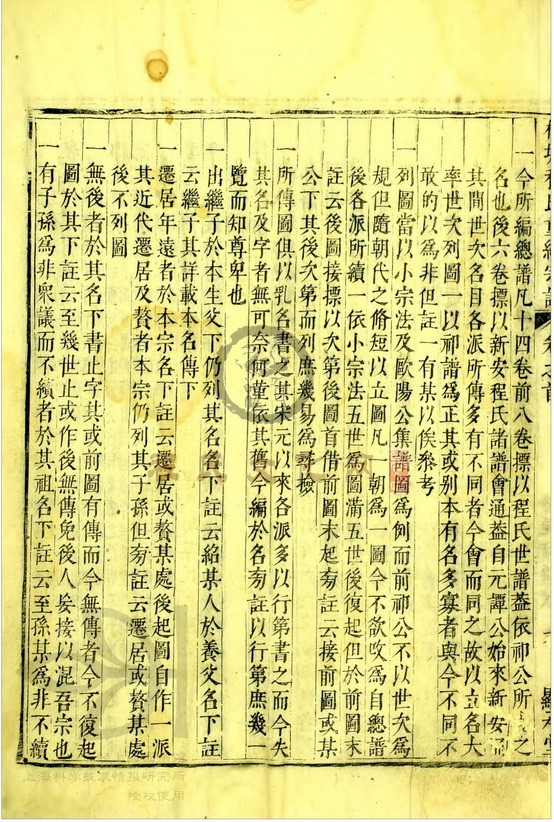 一今所編總譜凡十四卷前八卷標以程氏世譜葢依祁公所
名也後六卷標以新安程氏諸譜會通葢自元譚公始來新安
其間世次名目各派所傳多有不同者今會而同之故以立名大
率世次列圖一以祁譜爲正其或别本有名多寡者與今不同不
敢的以爲非但註一有某以俟叅考
一列圖當以小宗法及歐陽公集譜圖爲例而前祁公不以世次爲
規但隨朝代之脩短以立圖凡一朝爲一圖今不欲攺爲自總譜
後各派所續一依小宗法五世爲圖滿五世後復起但於前圖末
註云後圖接標以次第後圖首借前圖末起旁註云接前圖或某
公下其後次第而列庶幾易爲尋撿
一所傳圖俱以乳名書之其宋元以來各派多以行第書之而今失
其名及字者無可奈何董依其舊今編於名旁註以行第庶幾一
覽而知尊卑也
一出繼子於本生父下仍列其名名下註云紿某人於養父名下註
云繼子其詳載本名傳下
一遷居年遠者於本宗名下註云遷居或贅某處後起圖自作一派
其近代遷居及贅者本宗仍列其子孫但旁註云遷居或贅某處
後不列圖
一無後者於其名下書止字其或前圖有傳而今無傳者今不復起
圖於其下註云至幾世止或作後無傳免後人妄接以混吾宗也
一有子孫爲非衆議而不續者於其祖名下註云至孫某爲非不續
上海科学技术情报研究所
授权使用